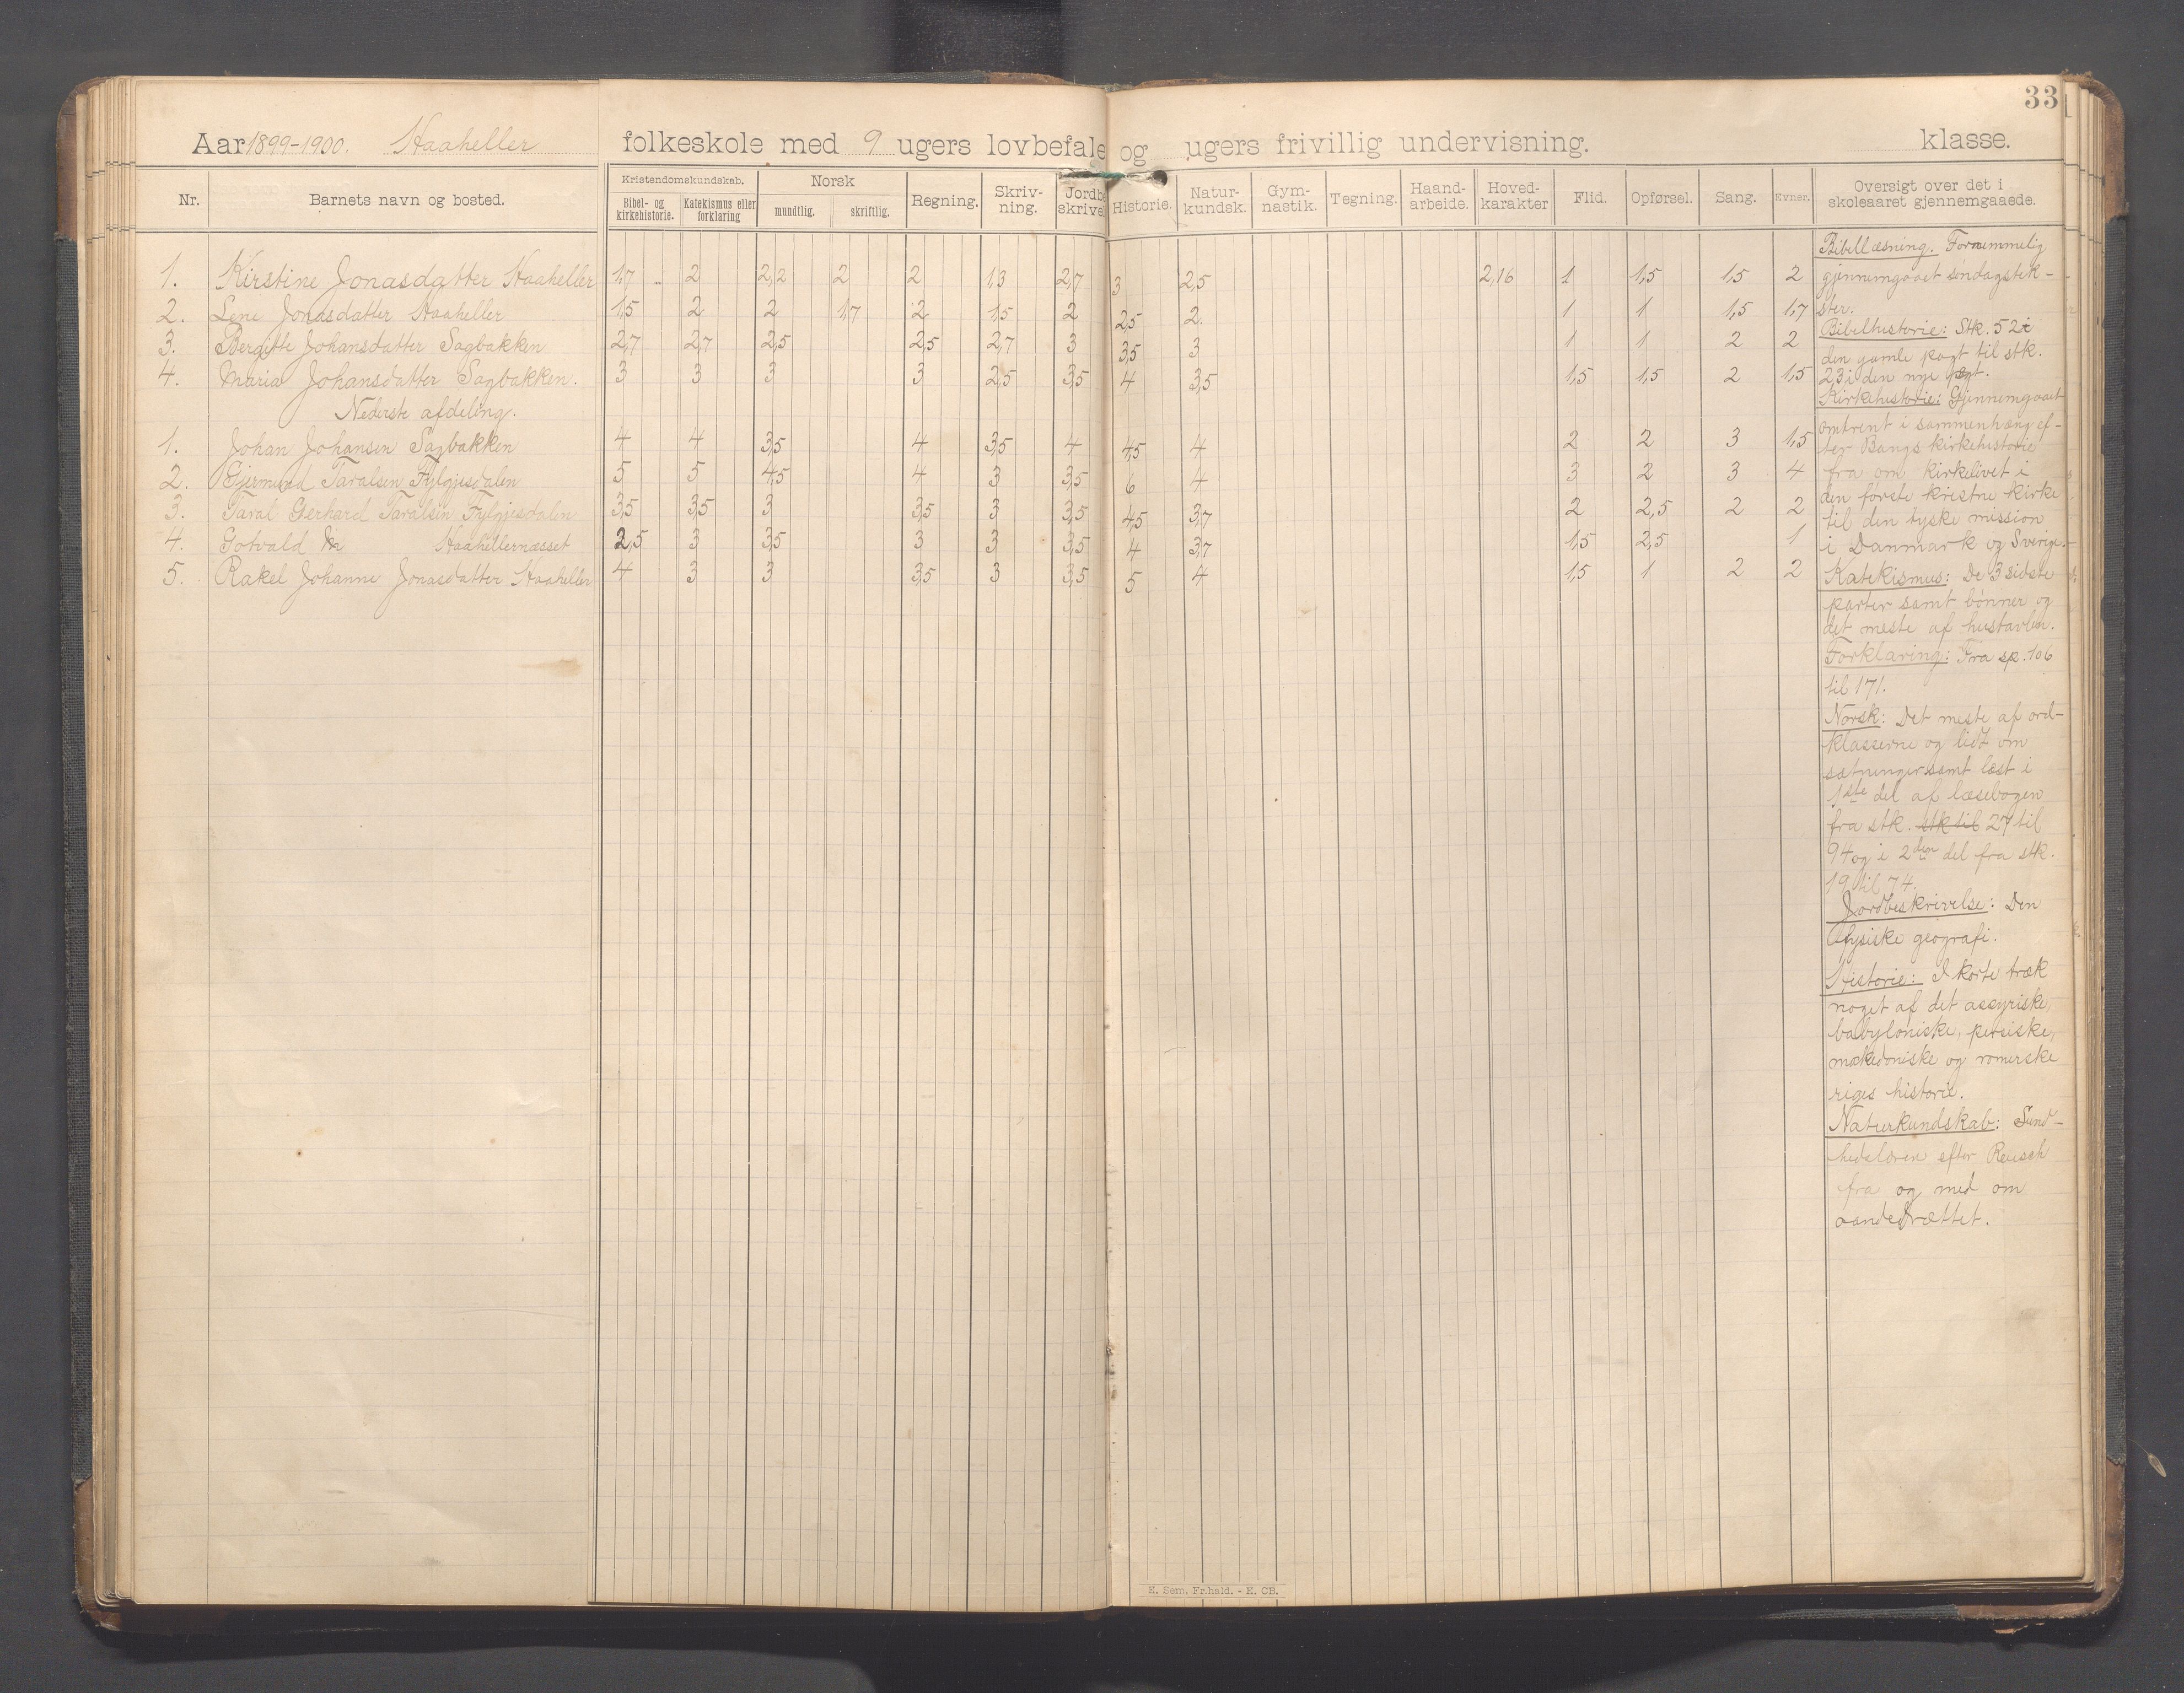 33
Aar 1899-1900. Haaheller folkeskole med 9 ugers lovbefale og ugers frivillig undervisning. klasse.
Nr. Barnets navn og bosted. Kristendomskundskab. Bibel- og kirkehistorie. Katekismus eller forklaring Norsk mundtlig. skriftlig. Regning. Skriv-ning. Jordbe skrivel Historie. Natur-kundsk. Gym-nastik. Tegning. Haand-arbeide. Hoved-karakter Flid. Opførsel. Sang. Evner. Oversigt over det i skoleaaret gjennemgaaede.
1. Kirstine Jonasdatter Haaheller 1,7 2 2,2 2 2 1,3 2,7 3 2,5 2,16 1 1,5 1,5 2
2. Lene Jonasdatter Haaheller 1,5 2 2 1,7 2 1,5 2 2,5 2 1 1 1,5 1,7
3. Bergitte Johansdatter Sagbakken 2,7 2,7 2,5 2,5 2,7 3 3,5 3 1 1 2 2
4. Maria Johansdatter Sagbakken. 3 3 3 3 2,5 3,5 4 3,5 1,5 1,5 2 1,5
Nederste afdeling.
1. Johan Johansen Sagbakken 4 4 3,5 4 3,5 4 4,5 4 2 2 3 1,5
2. Gjermund Taralsen Fylgjesdalen 5 5 4,5 4 3 3,5 6 4 3 2 3 4
3. Taral Gerhard Taralsen Fylgjesdalen 3,5 3,5 3 3,5 3 3,5 4,5 3,7 2 2,5 2 2
4. Gotvald Haahellernæsset 2,5 3 3,5 3 3 3,5 4 3,7 1,5 2,5 1
5. Rakel Johanne Jonasdatter Haaheller 4 3 3 3,5 3 3,5 5 4 1,5 1 2 2
Bibellæsning. Fornemmelig
gjennemgaaet søndagstek-
ster.
Bibelhistorie: Stk. 52 i
den gamle pagt til stk.
23 i den nye pagt.
Kirkehistorie: Gjennemgaaet
omtrent i sammenhæng ef-
ter Bangs kirkehistorie
fra om kirkelivet i
den første kristne kirke
til den tyske mission
i Danmark og Sverige.
Katekismus: De 3 sidste
parter samt bønner og
det meste af hustavlen.
Forklaring: Fra sp. 106
til 171.
Norsk: Det meste af ord-
klasserne og lidt om
sætninger samt læst i
1ste del af læsebogen
fra stk. stk til 27 til
94 og i 2den del fra stk.
19 til 74.
Jordbeskrivelse: Den
fysiske geografi.
Historie: I korte træk
noget af det assyriske,
babyloniske, persiske,
makedoniske og romerske
riges historie.
Naturkundskab: Sund-
hedslæren efter Reusch
fra og med om
aandedrættet.
E. Sem, Fr.hald. - E. CB.